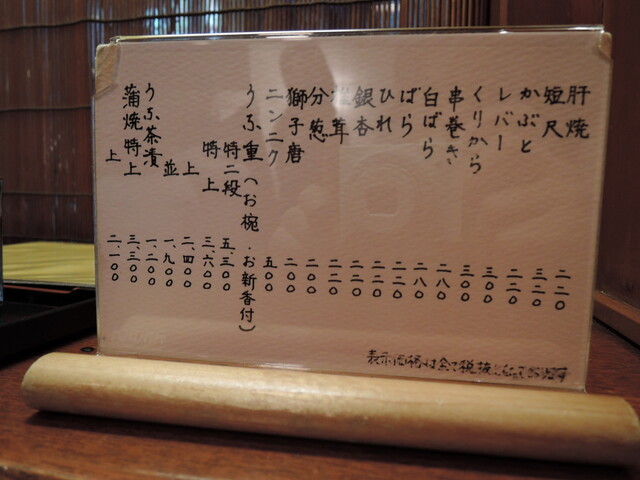 肝焼 二二〇
短尺 三二〇
かぶと 二二〇
レバー 三〇〇
くりから 三〇〇
串巻き 二八〇
白ばら 二八〇
ばら 二二〇
ひれ 二〇〇
銀杏 二〇〇
椎茸 二二〇
分葱 二〇〇
獅子唐 二〇〇
ニンニク 五〇〇
うな重(お椀・お新香付)
特二段 五、三〇〇
特上 三、六〇〇
上 二、四〇〇
並 一、九〇〇
うな茶漬 一、二〇〇
蒲焼特上 三、三〇〇
上 二、一〇〇
表示価格は全て税抜となっております